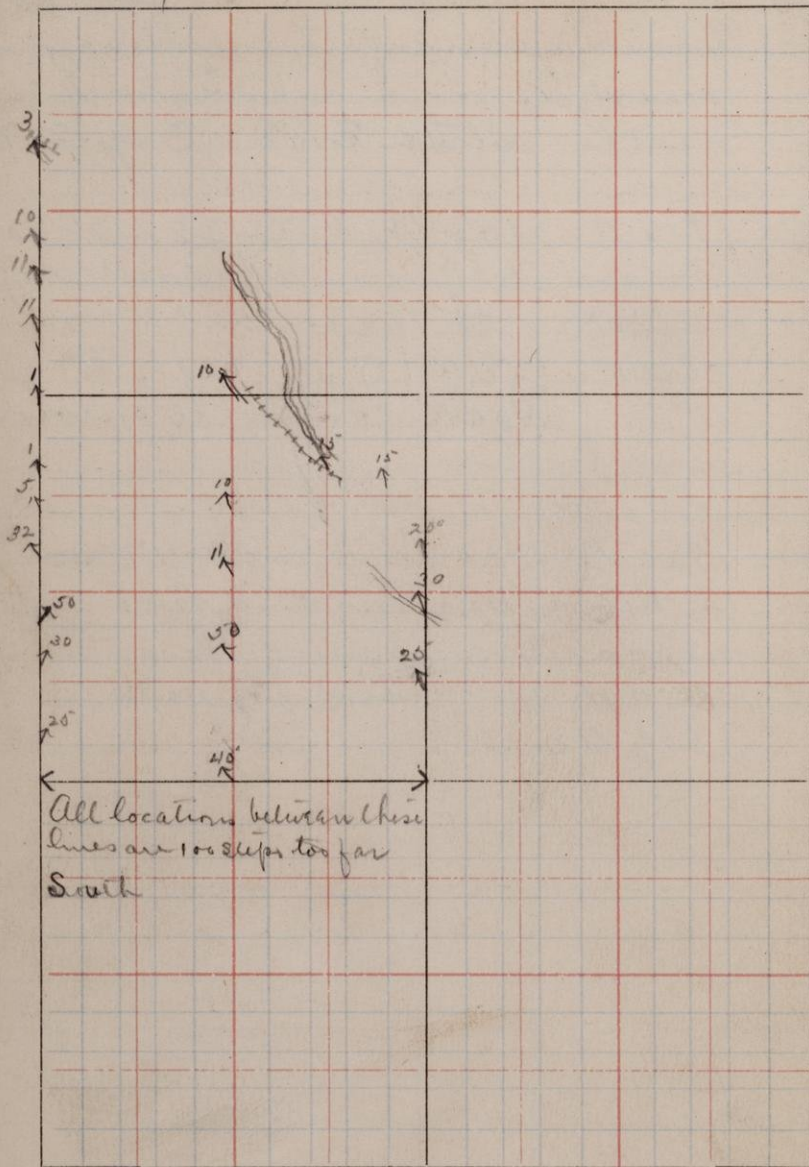 3
10
11
11
1
1
5
32
50
30
25
10
5
15
10
11
50
40
20
30
20
All locations between these
lines are 100 steps too far
South